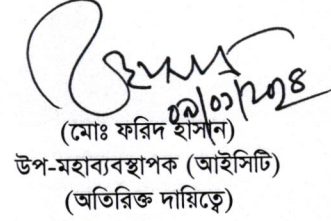 ০৯/০১/২০২৪
(মোঃ ফরিদ হাসান)
উপ-মহাব্যবস্থাপক (আইসিটি)
(অতিরিক্ত দায়িত্বে)